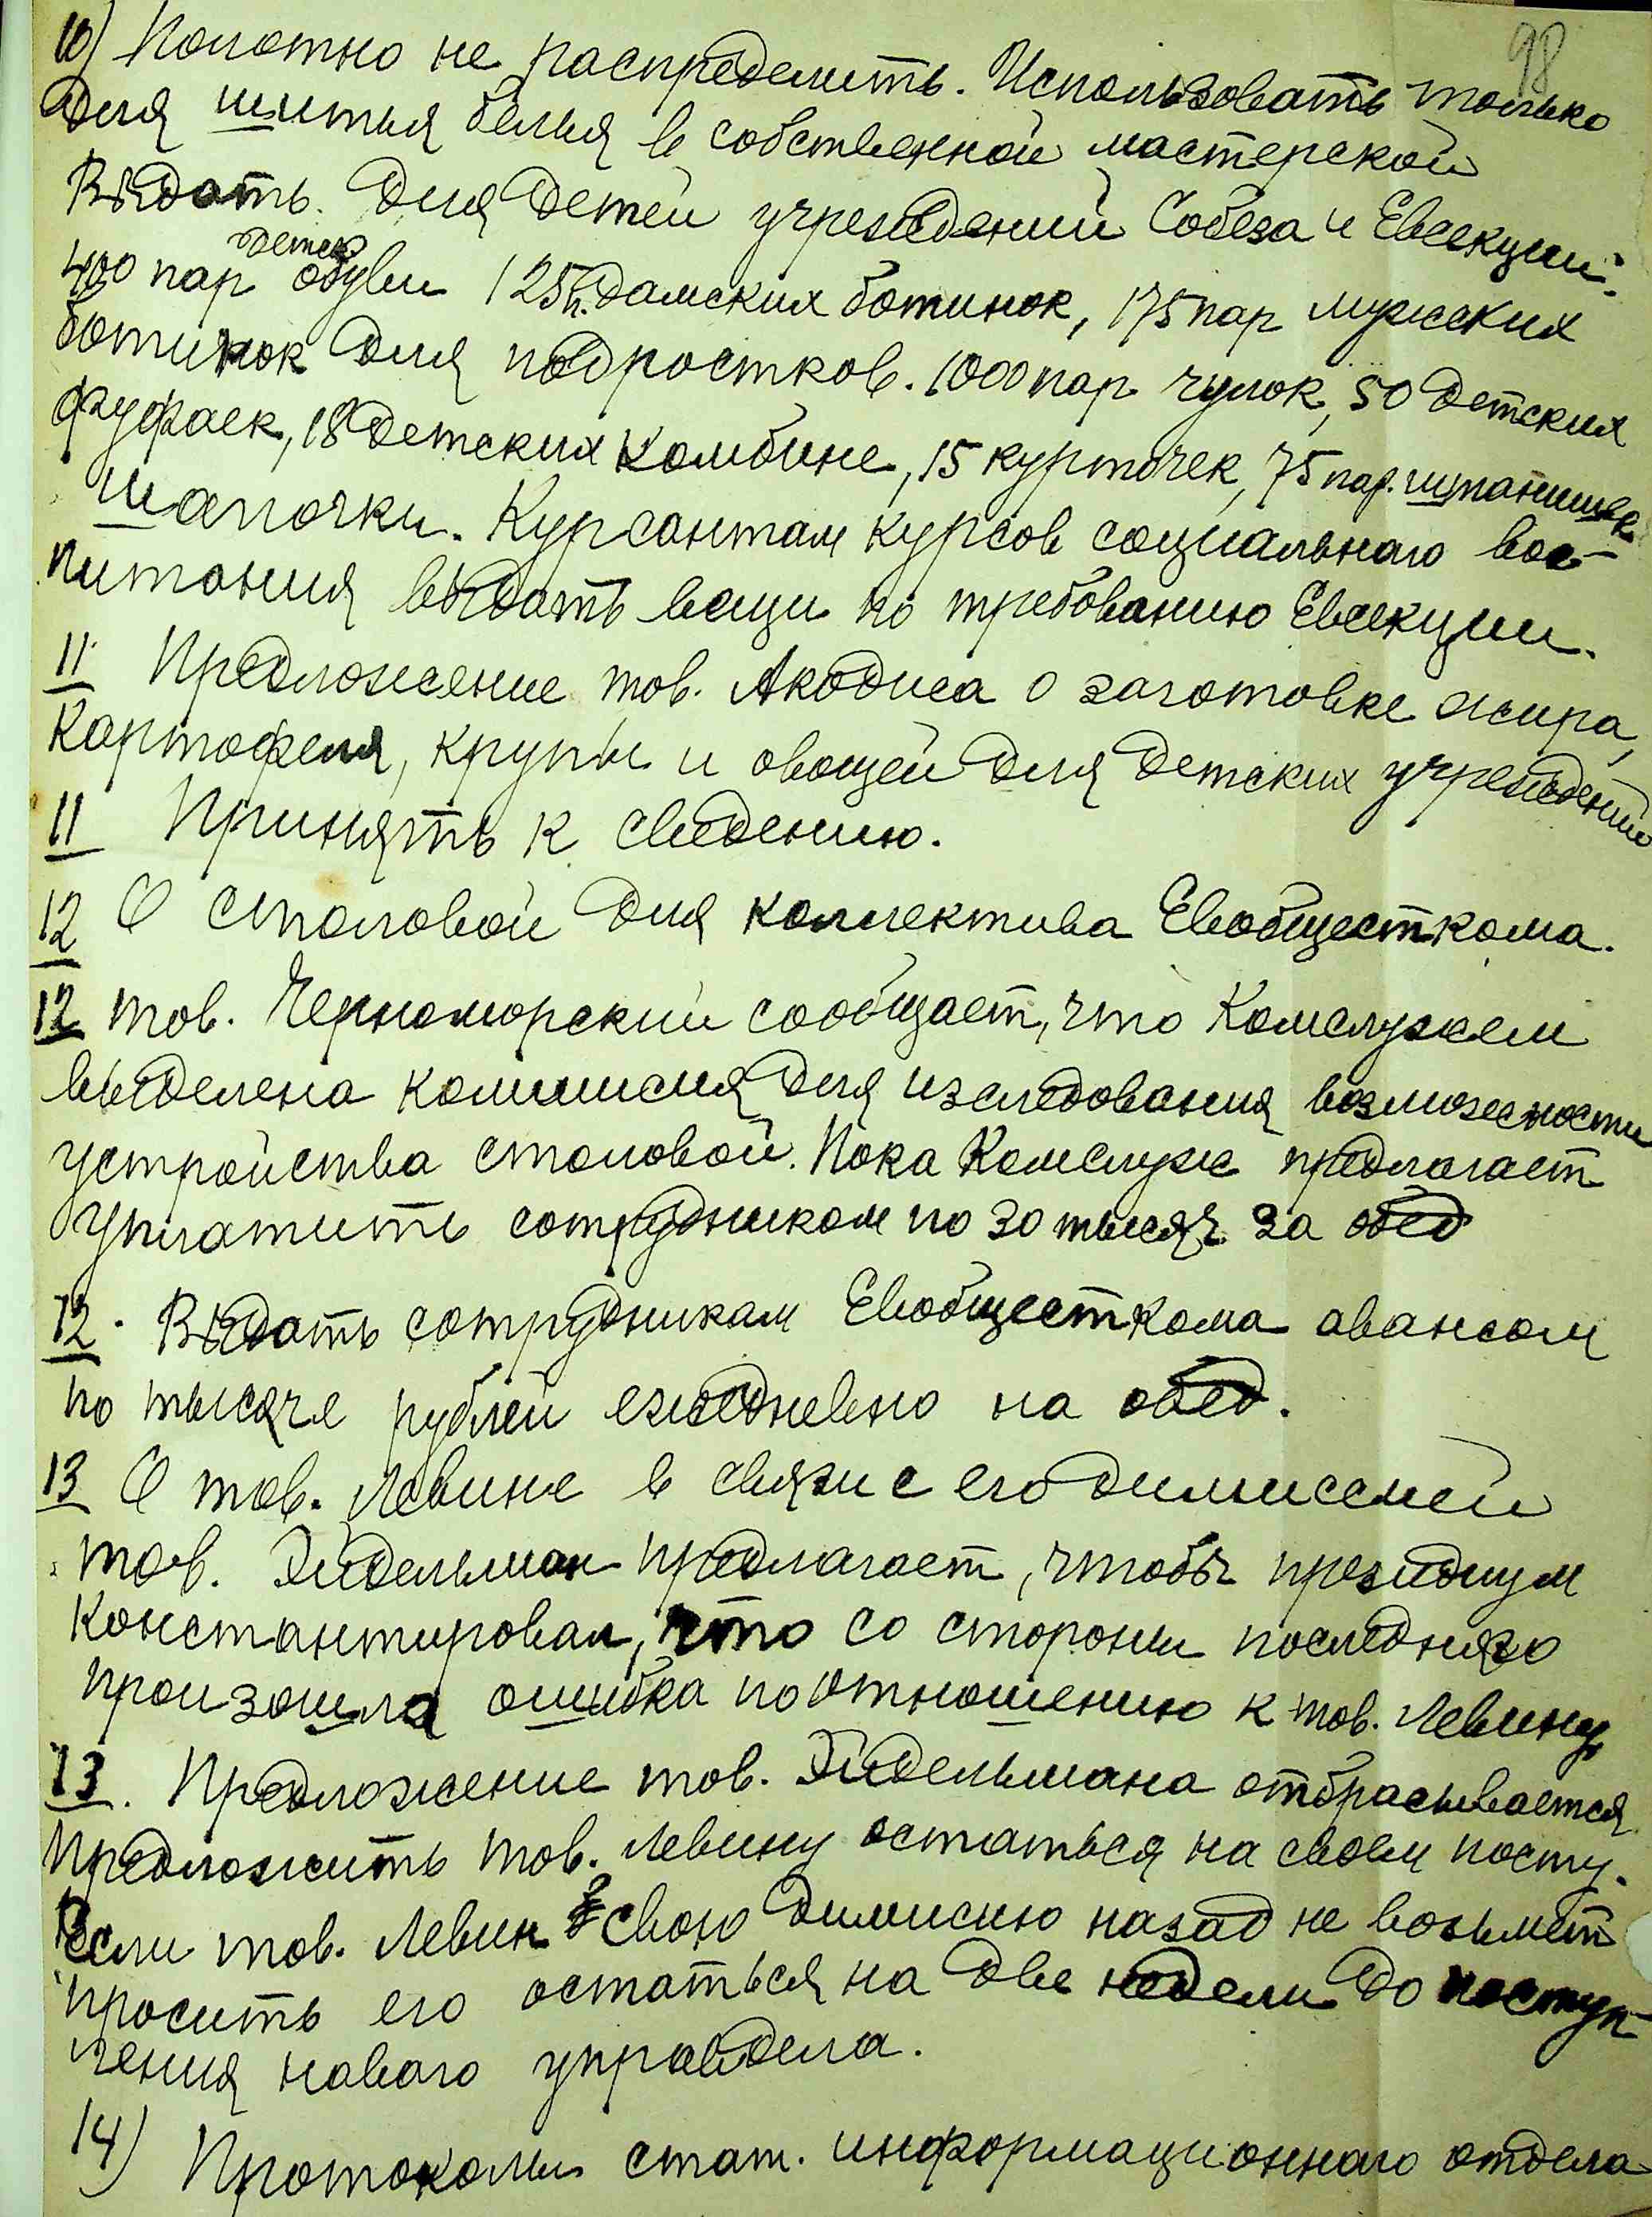 98
10) Полотно не распределить. Использовать только
для шитья белья в собственной мастерской
Выдать для детей учреждений Собеза и Евсекции:
детск
400 пар обуви 125 п. дамских ботинок, 175 пар мужских
ботинок для подростков. 1000 пар чулок, 50 детских
фуфаек, 18 детских комбине, 15 курточек, 75 пар. штанишек
шапочки. Курсантам курсов социальнаго вос-
питания выдать вещи по требованию Евсекции.
11 Предложение тов. Акодиса о заготовке жира,
картофеля, крупы и овощей для детских учреждений
11 Принять к сведению.
12 О столовой для коллектива Евобщесткома.
12 тов. Черноморский сообщает, что Комслужем
выделена коммисия для изследования возможности
устройства столовой. Пока Комслуж предлагает
уплатить сотрудником по 30 тысяч за обед
12. Выдать сотрудникам Евобщесткома авансом
по тысяче рублей ежедневно на обед.
13 О тов. Левине в связи с его димиссией
тов. Эйдельман предлагает, чтобы президиум
константировал, что со стороны последняго
произошла ошибка по отношению к тов. Левину
13. Предложение тов. Эйдельмана отбрасывается
Предложить тов. Левину остаться на своем посту.
Если тов. Левин свою димисию назад не возьмет
просить его остаться на две недели до поступ-
ления новаго управдела.
14) Протоколы стат. информационнаго отдела